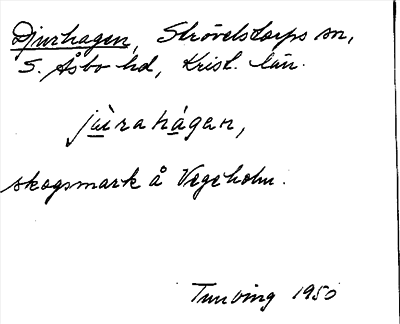 Djurhagen, Strövelstorps sn,
S. Åsbo hd, Krist. län.
jùrahágan,
skogsmark å Vegeholm.
Tunving 1950